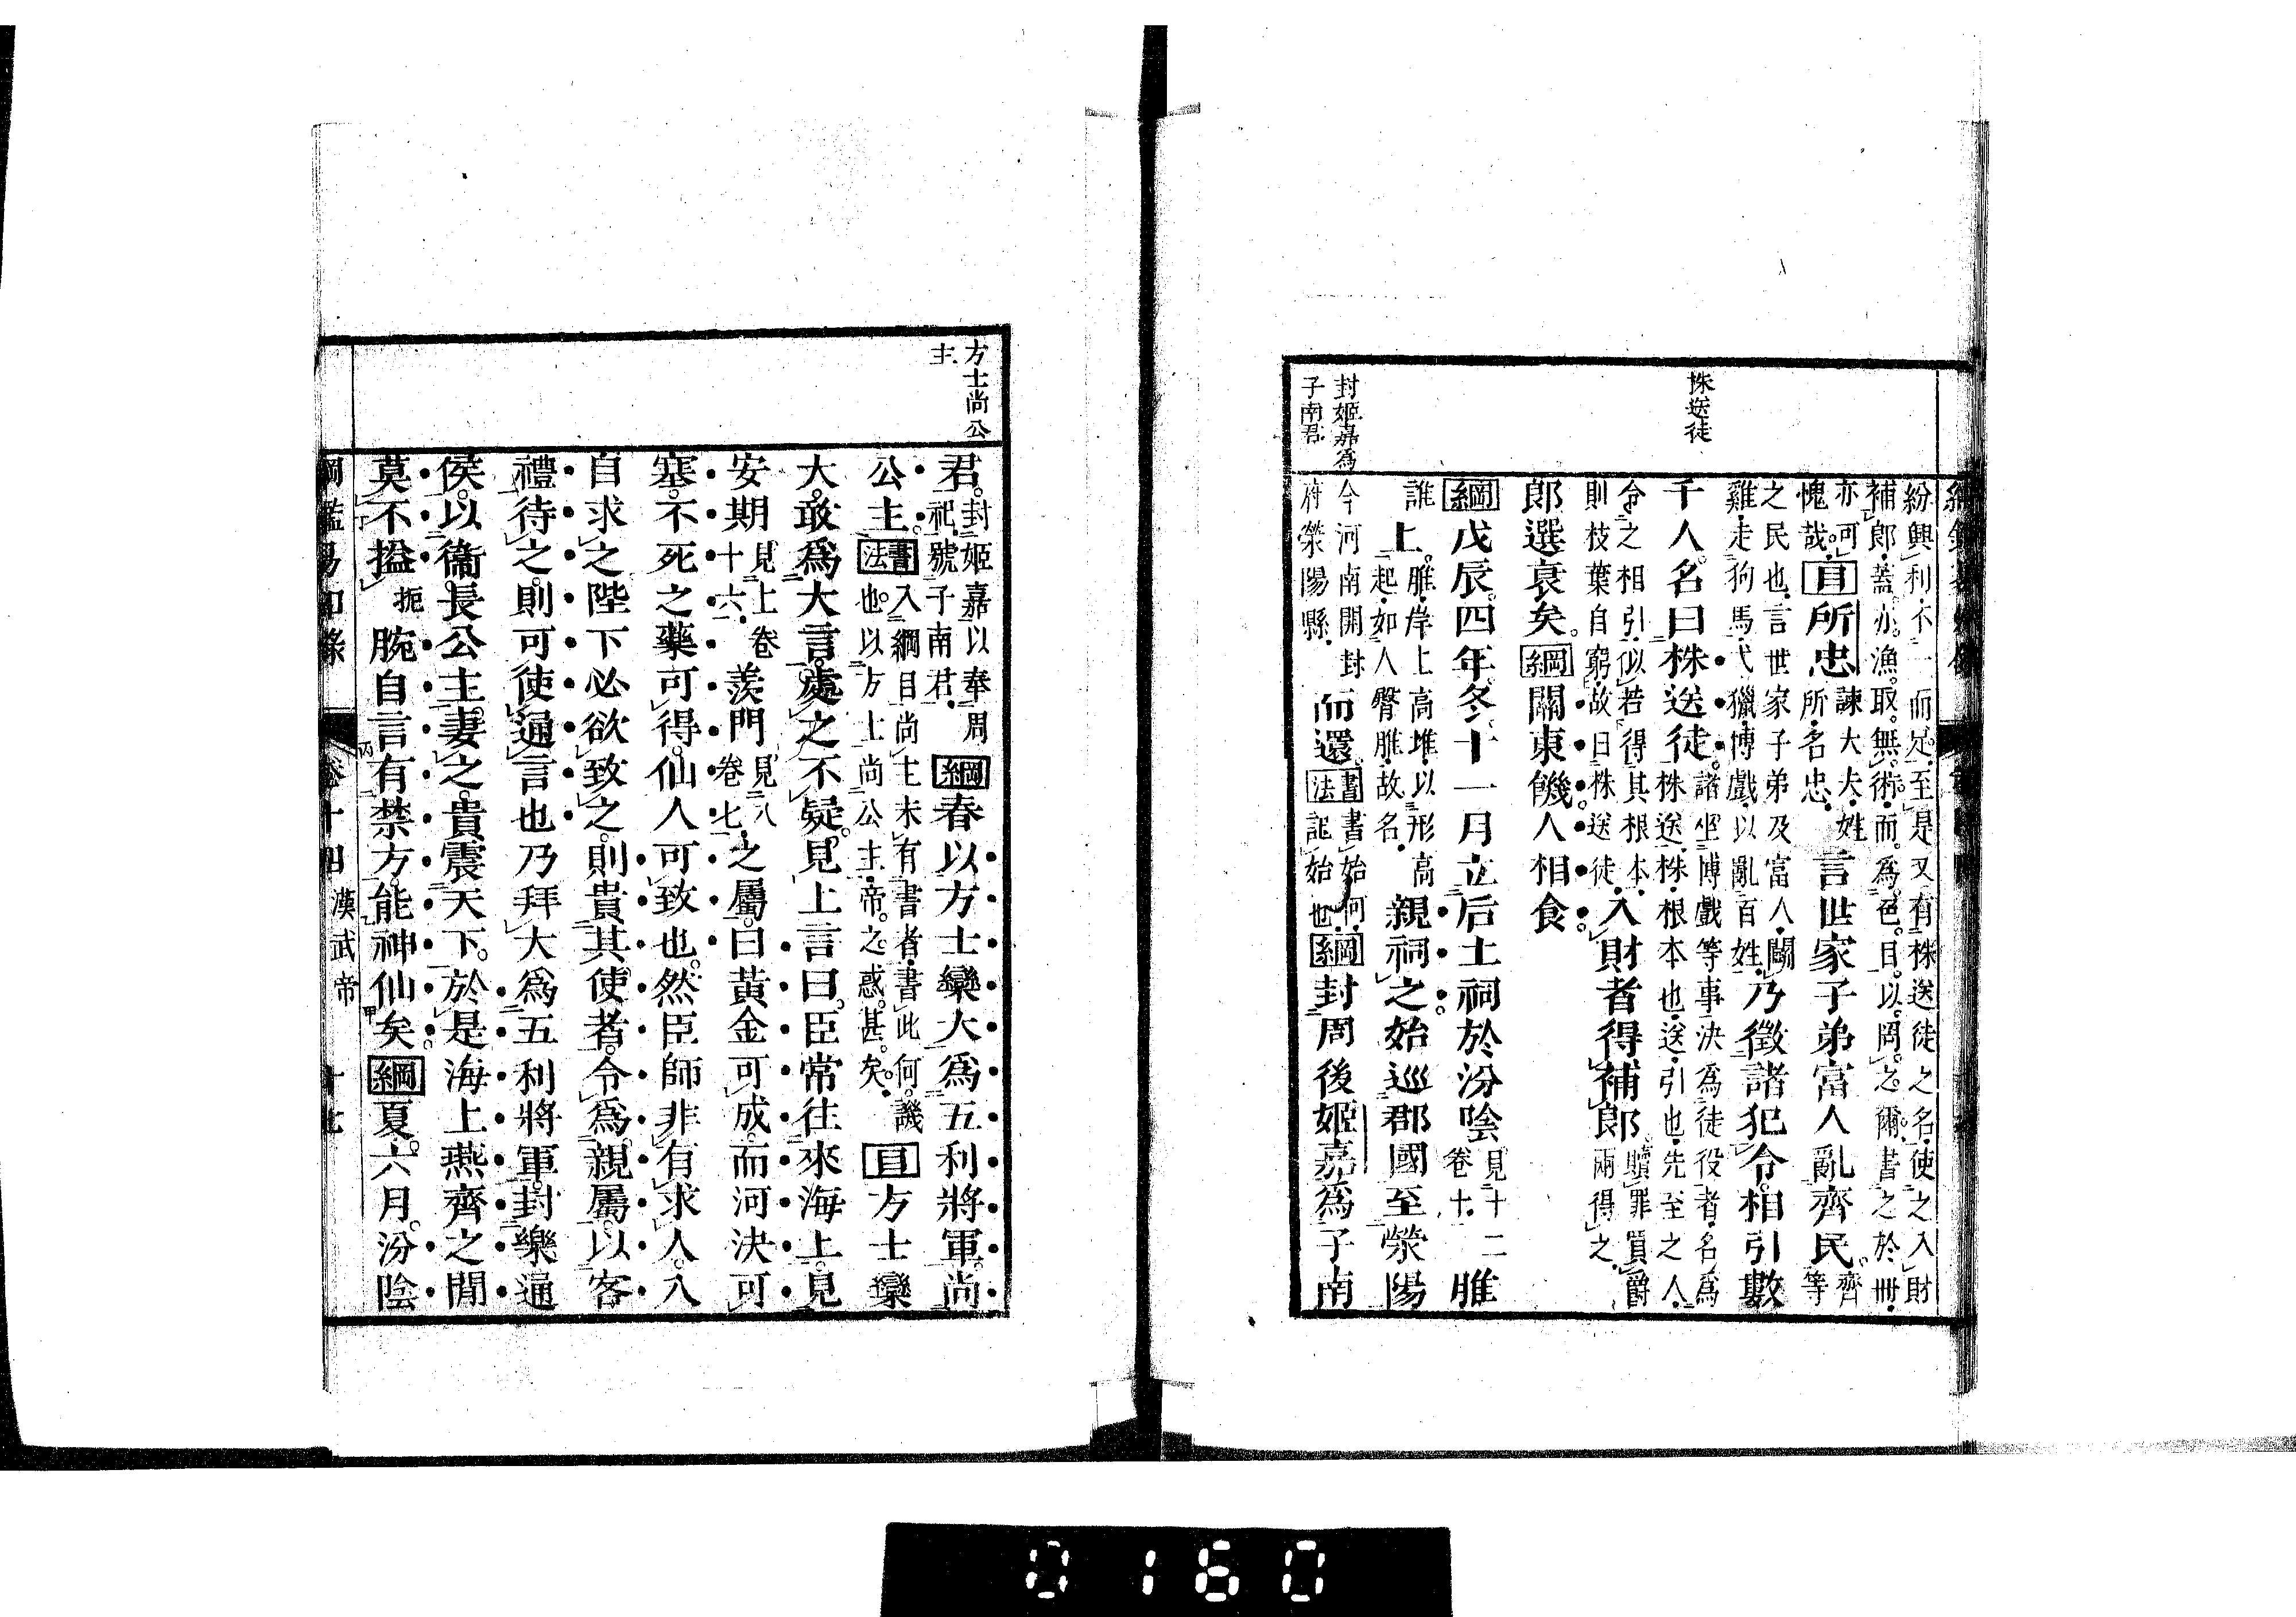 株送徒
封姬嘉爲
子南君
紛興利不一而足至是又有株送徒之名使之入財
補郎蓋亦漁取無術而爲色目以罔之爾書之於冊
亦可
愧哉目所忠諫大夫姓
所名忠言世家子弟富人亂齊民齊等
之民也言世家子弟及富人鬭
雞走狗馬弋獵博戲以亂百姓乃徵諸犯令相引數
千人名曰株送徒諸坐博戲等事決爲徒役者名爲
株送株根本也送引也先至之人
令之相引似若得其根本
則枝葉自窮故曰株送徒入財者得補郎贖罪買爵
兩得之
郎選衰矣綱關東饑人相食
綱戊辰四年冬十一月立后土祠於汾陰見十二
卷十脽
誰上脽岸上高堆以形高
起如人臀脽故名親祠之始巡郡國至滎陽
今河南開封
府滎陽縣而還書法書始何
記始也綱封周後姬嘉爲子南
方士尚公
主
君封姬嘉以奉周
祀號子南君綱春以方士欒大爲五利將軍尚
公主書法入綱目尚主未有書者書此何譏
也以方士尚公主帝之惑甚矣目方士欒
大敢爲大言處之不疑見上言曰臣常往來海上見
安期見上卷
十六羨門見八
卷七之屬曰黃金可成而河決可
塞不死之藥可得仙人可致也然臣師非有求人人
自求之陛下必欲致之則貴其使者令爲親屬以客
禮待之則可使通言也乃拜大爲五利將軍封樂通
侯以衞長公主妻之貴震天下於是海上燕齊之閒
莫不搤扼腕自言有禁方能神仙矣綱夏六月汾陰
綱鑑易知錄 卷十四 漢武帝 十七
0160